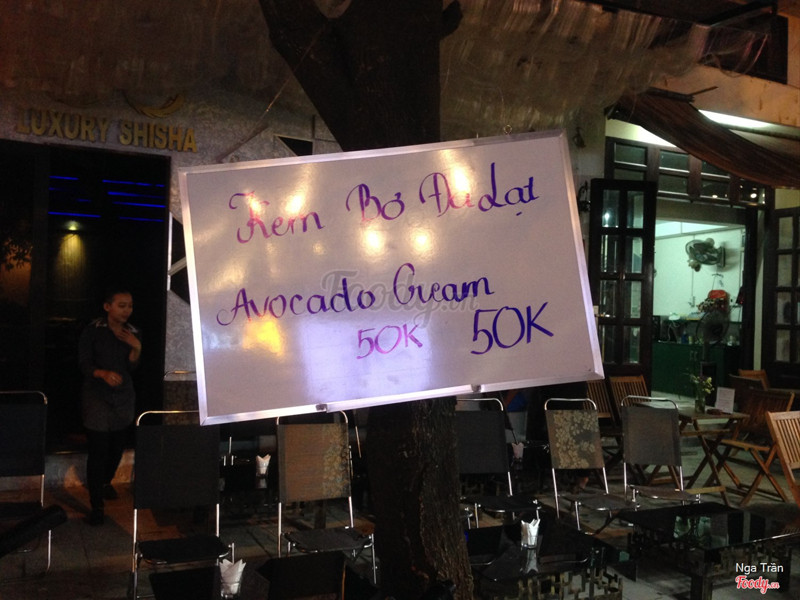 LUXURY SHISHA
Kem Bơ Đà Lạt
Avocado Cream
50K 50K
Foody.vn
Nga Trân
Foody.vn